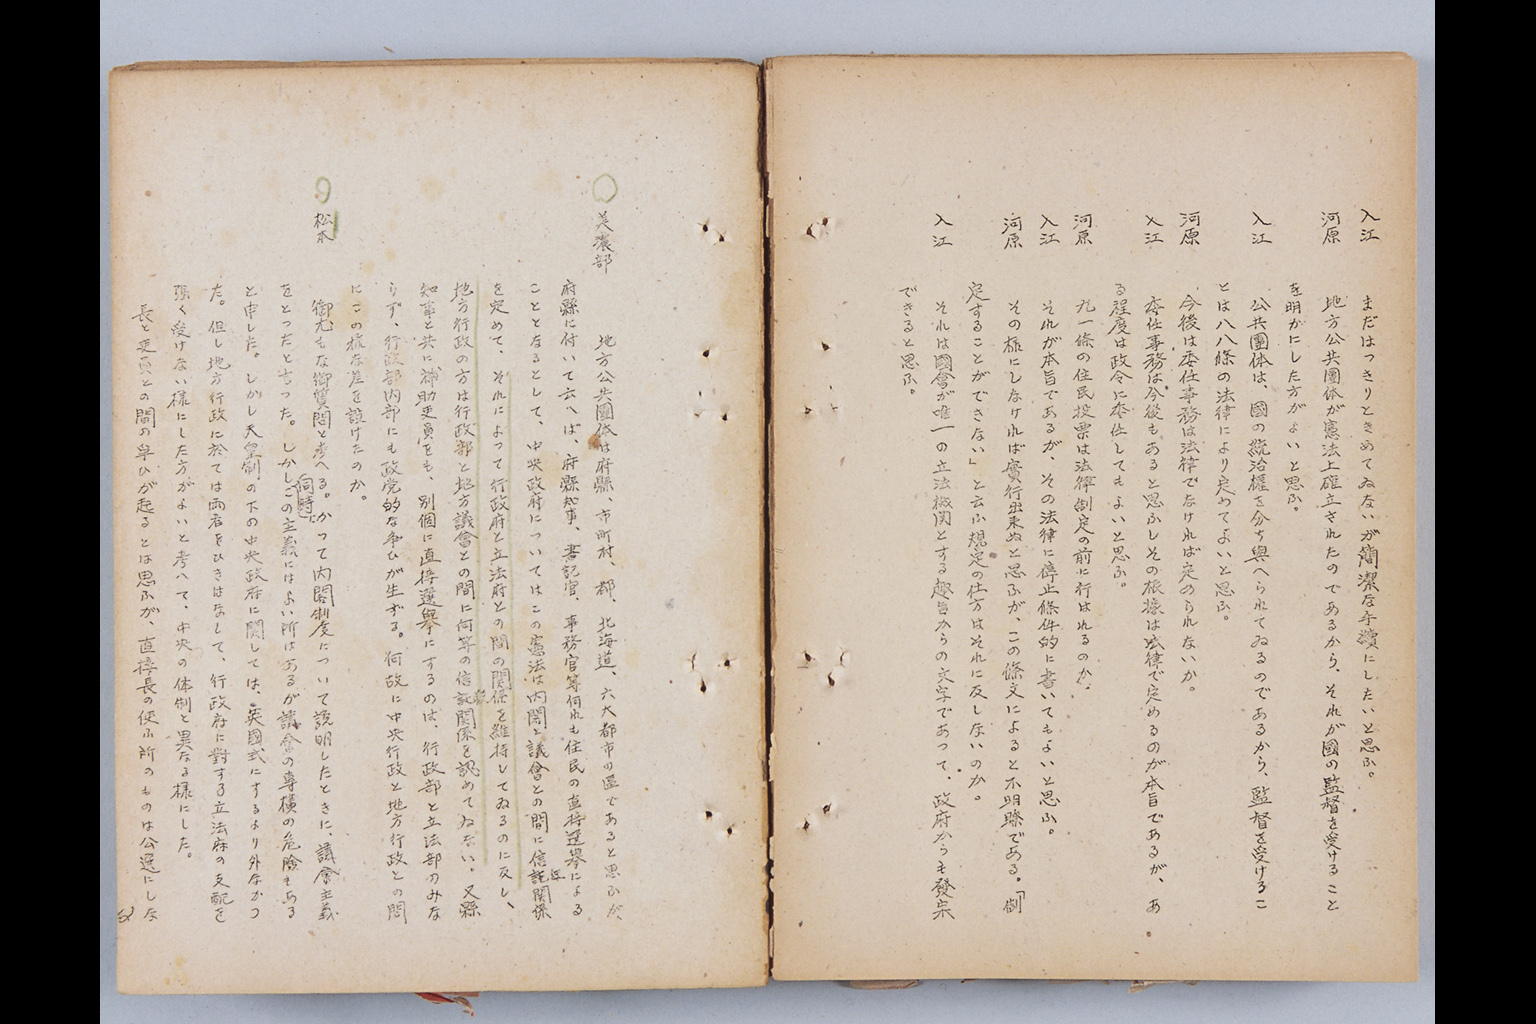 入江　まだはっきりときめてゐないが簡潔な手續にしたいと思ふ。
河原　地方公共團体が憲法上確立されたのであるから、それが國の監督を受けること
を明かにした方がよいと思ふ。
入江　公共團体は、國の統治權を分ち與へられてゐるのであるから、監督を受けるこ
とは八八條の法律により定めてよいと思ふ。
河原　今後は委任事務は法律でなければ定められないか。
入江　委任事務は今後もあると思ふしその根據は法律で定めるのが本旨であるが、あ
る程度は政令に委任してもよいと思ふ。
河原　九一條の住民投票は法律制定の前に行はれるのか。
入江　それが本旨であるが、その法律に停止條件的に書いてもよいと思ふ。
河原　その様にしなければ實行出來ぬと思ふが、この條文によると不明瞭である。「制
定することができない」と云ふ規定の仕方はそれに反しないのか。
入江　それは國會が唯一の立法機関とする趣旨からの文字であって、政府からも發案
できると思ふ。
美濃部　地方公共團体は府縣、市町村、都、北海道、六大都市の區であると思ふが、
府縣に付いて云へば、府縣知事、書記官、事務官等何れも住民の直接選挙による
こととなるとして、中央政府についてはこの憲法は内閣と議會との間に信任関係
を定めて、それによって行政府と立法府との間の関係を維持してゐるのに反し、
地方行政の方は行政部と地方議會との間に何等の信任関係を認めてゐない。又縣
知事と共に補助吏員をも、別個に直接選擧にするのは、行政部と立法部のみな
らず、行政部内部にも政党的な争ひが生ずる。何故に中央行政と地方行政との間
にこの様な差を設けたのか。
松本　御尤もな御質問と考へる。かって内閣制度について説明したときに、議會主義
をとったと言った。しかし同時にこの主義にはよい所はあるが議會の専横の危險もある
と申した。しかし天皇制の下の中央政府に関しては、英國式にするより外なかつ
た。但し地方行政に於ては両者をひきはなして、行政府に對する立法府の支配を
強く受けない様にした方がよいと考へて、中央の体制と異なる様にした。
長と吏員との間の争ひが起るとは思ふが、直接長の使ふ所のものは公選にしな